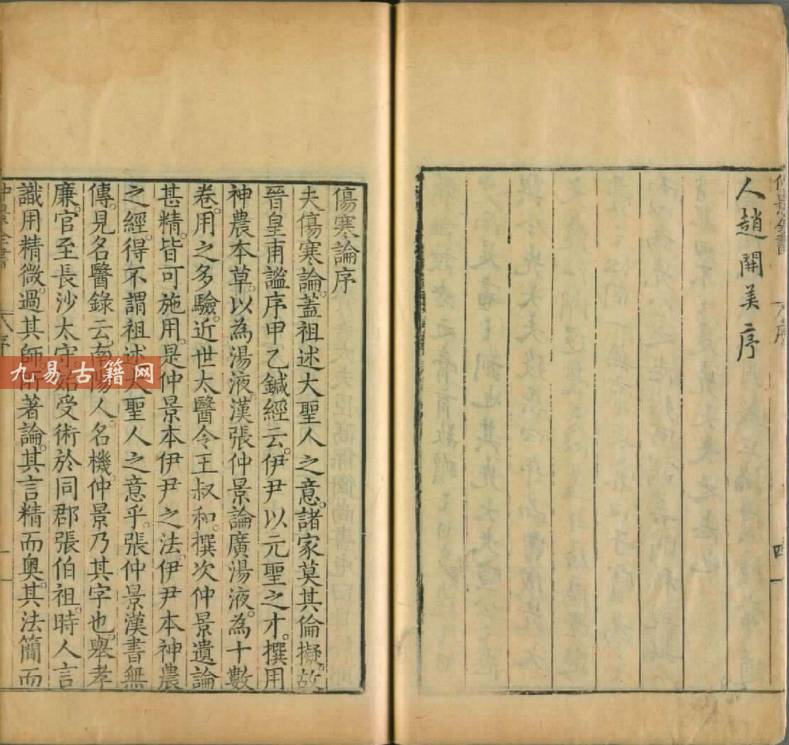 人趙開美序
四
傷寒論序
夫傷寒論。蓋祖述大聖人之意。諸家莫其倫擬。故
晉皇甫謐序甲乙鍼經云。伊尹以元聖之才。撰用
神農本草。以為湯液。漢張仲景論廣湯液。為十數
卷。用之多驗。近世太醫令王叔和。撰次仲景遺論
甚精。皆可施用。是仲景本伊尹之法。伊尹本神農
之經。得不謂祖述大聖人之意乎。張仲景漢書無
傳。見名醫錄云。南陽人。名機。仲景乃其字也。舉孝
廉。官至長沙太守。受術於同郡張伯祖。時人言
識用精微。過其師。所著論。其言精而奧。其法簡而
九易古籍网